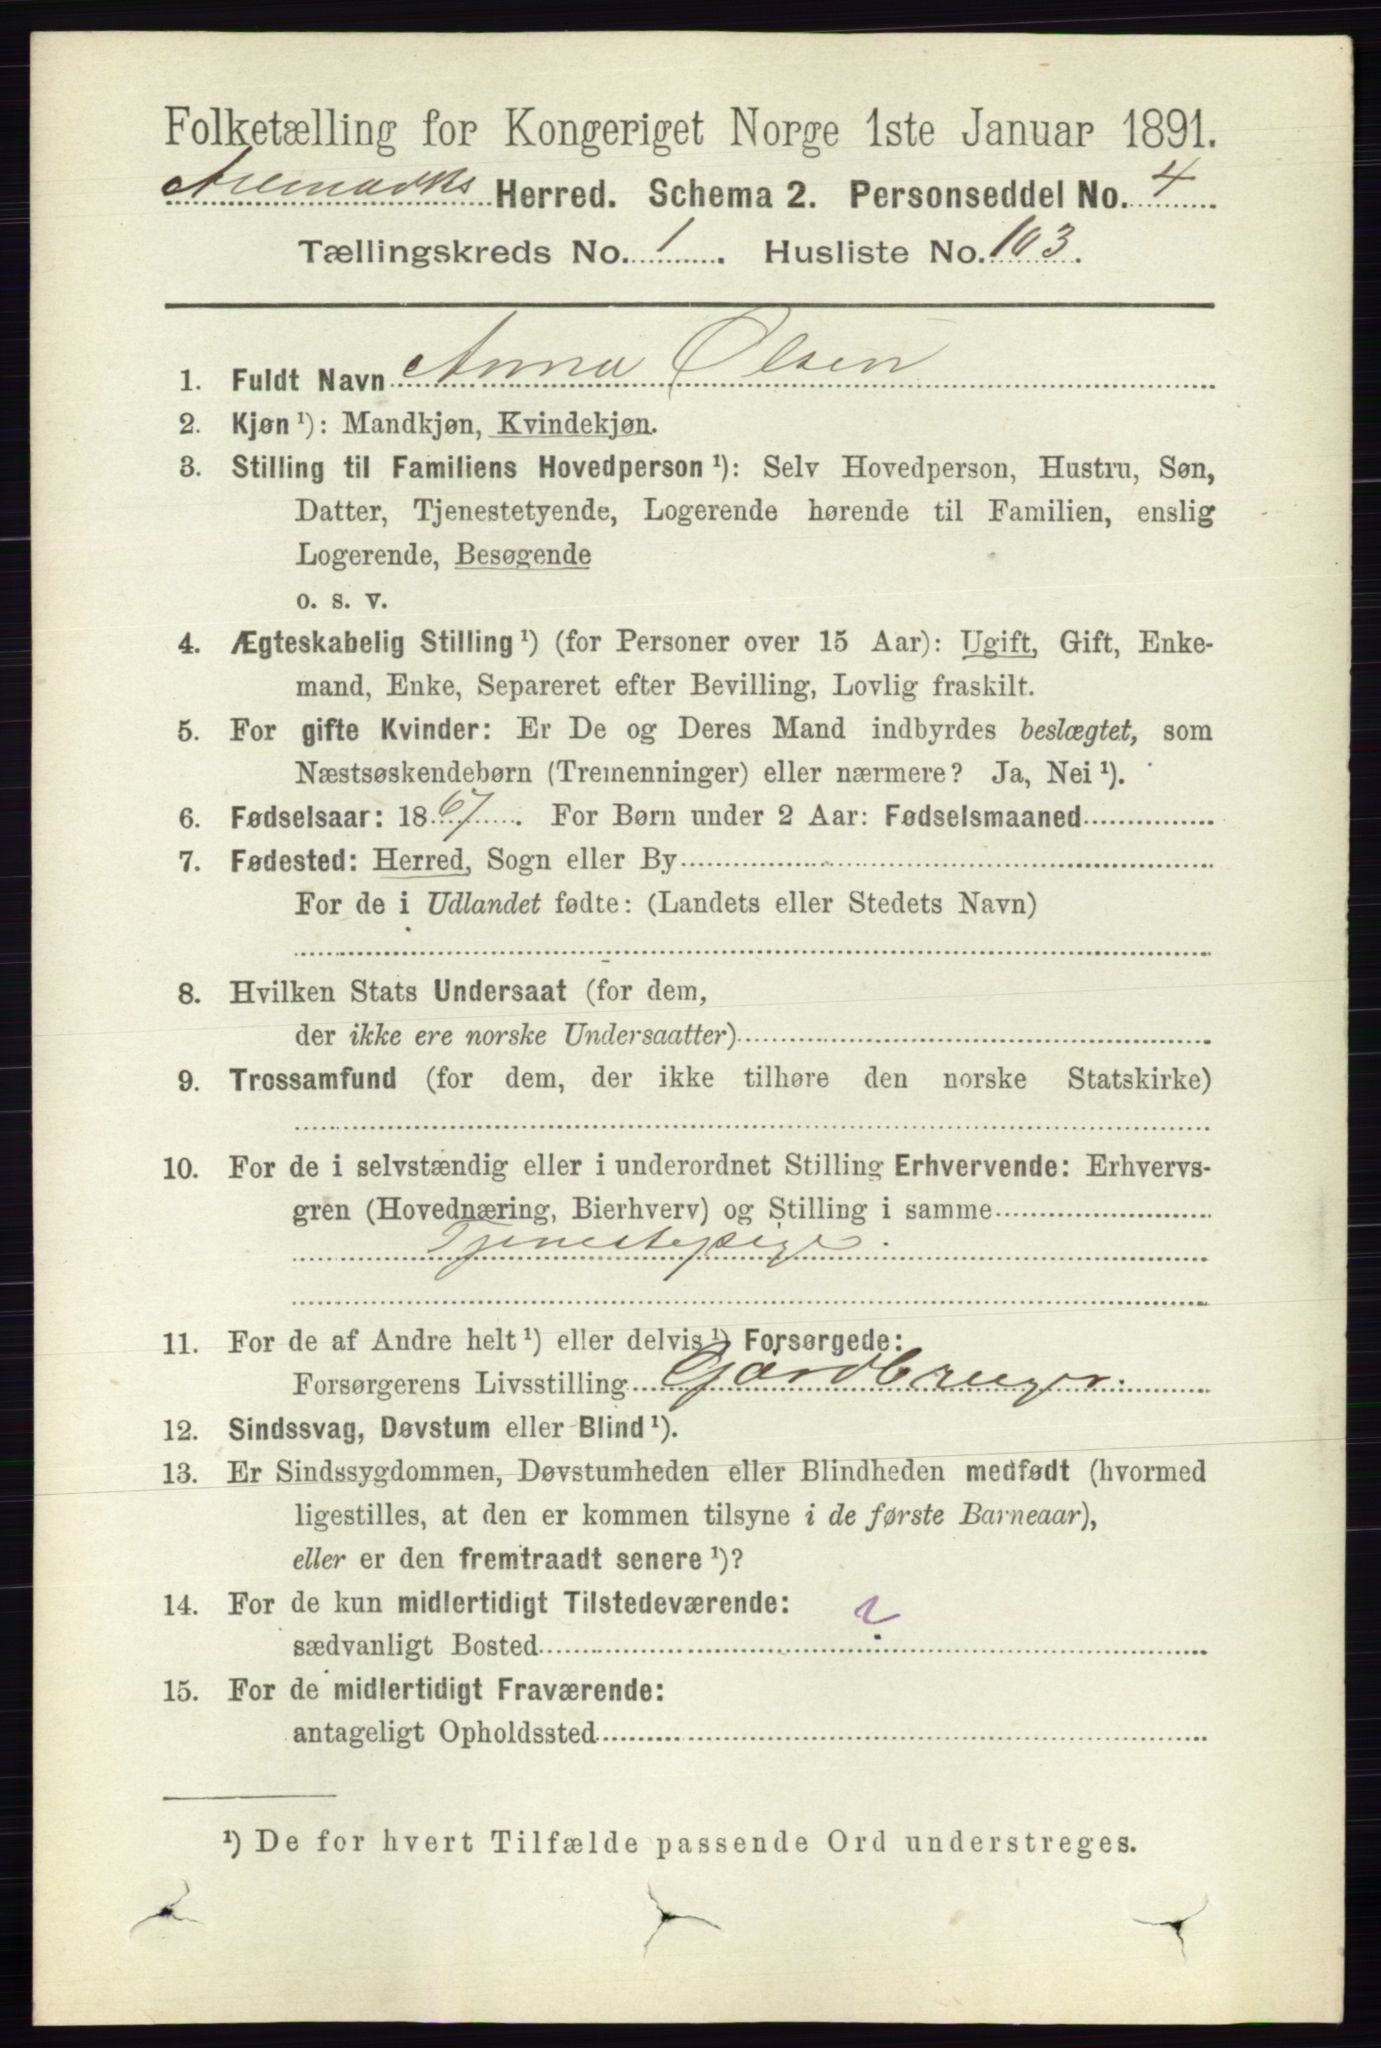 Folketælling for Kongeriget Norge 1ste Januar 1891.
Aremarks Herred. Schema 2. Personseddel No. 4
Tællingskreds No. 1. Husliste No. 103.
1. Fuldt Navn Anna Olsen
2. Kjøn ¹): Mandkjøn, Kvindekjøn.
3. Stilling til Familiens Hovedperson ¹): Selv Hovedperson, Hustru, Søn,
Datter, Tjenestetyende, Logerende hørende til Familien, enslig
Logerende, Besøgende
o. s. v.
4. Ægteskabelig Stilling ¹) (for Personer over 15 Aar): Ugift, Gift, Enke-
mand, Enke, Separeret efter Bevilling, Lovlig fraskilt.
5. For gifte Kvinder: Er De og Deres Mand indbyrdes beslægtet, som
Næstsøskendebørn (Tremenninger) eller nærmere? Ja, Nei ¹).
6. Fødselsaar: 1867. For Børn under 2 Aar: Fødselsmaaned
7. Fødested: Herred, Sogn eller By
For de i Udlandet fødte: (Landets eller Stedets Navn)
8. Hvilken Stats Undersaat (for dem,
der ikke ere norske Undersaatter)
9. Trossamfund (for dem, der ikke tilhøre den norske Statskirke)
10. For de i selvstændig eller i underordnet Stilling Erhvervende: Erhvervs-
gren (Hovednæring, Bierhverv) og Stilling i samme
Tjenestepige.
11. For de af Andre helt ¹) eller delvis ¹) Forsørgede:
Forsørgerens Livsstilling Gårdbruger.
12. Sindssvag, Døvstum eller Blind ¹).
13. Er Sindssygdommen, Døvstumheden eller Blindheden medfødt (hvormed
ligestilles, at den er kommen tilsyne i de første Barneaar),
eller er den fremtraadt senere ¹)?
14. For de kun midlertidigt Tilstedeværende:
sædvanligt Bosted ?
15. For de midlertidigt Fraværende:
antageligt Opholdssted
¹) De for hvert Tilfælde passende Ord understreges.